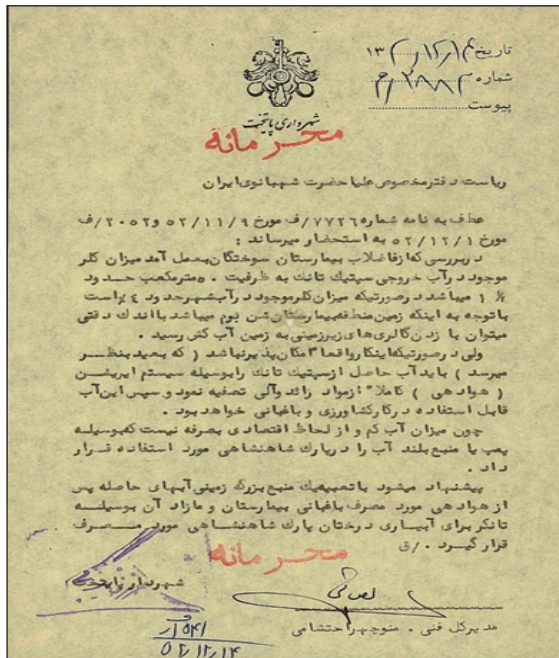 تاریخ ۱۳۵۲/۱۲/۱۴
شماره ۲۸۸۲/م
پیوست
شهرداری پایتخت
محرمانه
ریاست دفتر مخصوص علیاحضرت شهبانوی ایران
عطف به نامه شماره ۷۷۲۶/ف مورخ ۵۲/۱۱/۹ و ۲۰۵۲/ف
مورخ ۵۲/۱۲/۱ به استحضار میرساند :
در بررسی که از فاضلاب بیمارستان سوختگان بعمل آمد میزان کلر
موجود در آب خروجی سپتیک تانک به ظرفیت ۵۰ مترمکعب حدود
۱ ٪ میباشد در صورتیکه میزان کلر موجود در آب شهر حدود ٤٪ است
با توجه به اینکه زمین منطقه بیمارستان شن بوم میباشد با اندک دقتی
میتوان با زدن گالری های زیرزمینی به زمین آب کش رسید .
ولی در صورتیکه اینکار واقعا" امکان پذیر نباشد ( که بعید بنظر
میرسد ) باید آب حاصل از سپتیک تانک را بوسیله سیستم ایریشن
( هوادهی ) کاملا" از مواد زائد و آلی تصفیه نمود و سپس این آب
قابل استفاده در کار کشاورزی و باغبانی خواهد بود .
چون میزان آب کم و از لحاظ اقتصادی بصرفه نیست که بوسیله
پمپ یا منبع بلند آب را در پارک شاهنشاهی مورد استفاده قرار
داد .
پیشنهاد میشود با تعبیه یک منبع بزرگ زمینی آبهای حاصله پس
از هوادهی مورد مصرف باغبانی بیمارستان و مازاد آن بوسیله
تانکر برای آبیاری درختان پارک شاهنشاهی مورد مصرف
قرار گیرد . /ق
محرمانه
شهردار پایتخت
مدیر کل فنی . منوچهر احتشامی
۵۲/۱۲/۱۴